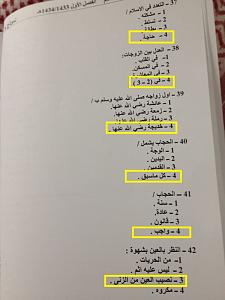 الفصل الاول 1433/1434هـ
37 - التعدد في الاسلام /
1 - مشكلة .
2 - تسلط .
4 - حاجة .
38 - العدل بين الزوجات:
1 - في القلب .
2 - في المسكن .
4 - في ( 2 - 3 )
39 - اول زوجاته صلى الله عليه وسلم ب /
1 - عائشة رضي الله عنها .
2 - زمعة رضي الله عنها .
3 - رملة رضي الله عنها .
4 - خديجة رضي الله عنها .
40 - الحجاب يشمل /
1 - الوجه .
2 - اليدين .
3 - القدمين .
4 - كل ماسبق .
41 - الحجاب /
1 - سنة .
2 - عادة .
3 - قانون .
4 - واجب .
42 - النظر بالعين بشهوة :
1 - من الحريات .
2 - ليس عليه اثم .
3 - نصيب العين من الزنى .
4 - مكروه .